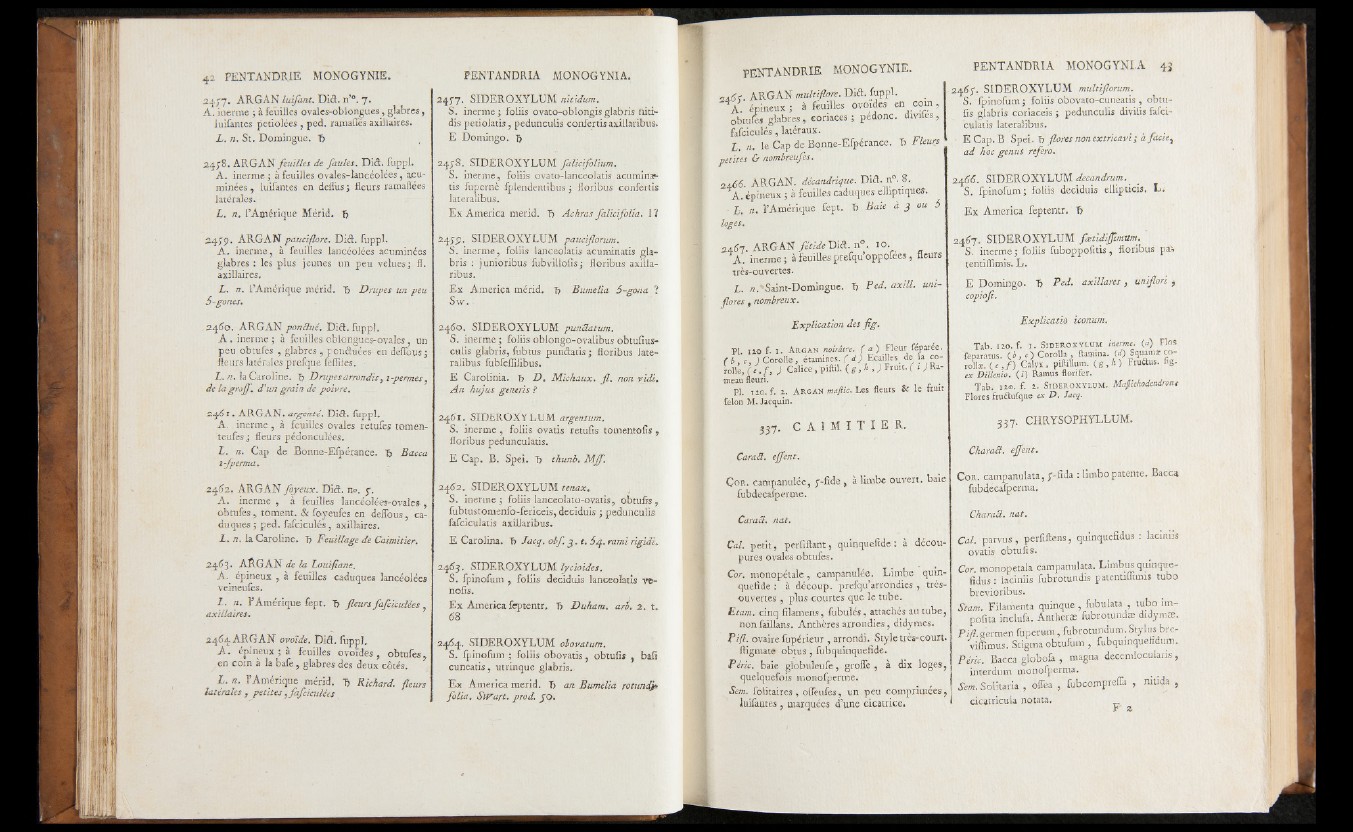 42 PENTANDRIE MONOGYNIE.
2457. ARGAN luiſant. Dict. n°. 7.
A. inerme ; à feuilles ovales-oblongues, glabres,
luiſantes petiolées, ped. ramaſſés axillaires.
L. n. St. Domingue. ♄
2458. ARGAN feuilles de ſaules. Dict. ſuppl.
A. inerme ; à feuilles ovales-lancéolées, acu-
minées, luiſantes en deſſus ; fleurs ramaſſées
latérales.
L. n. l'Amérique Mérid. ♄
2459. ARGAN pauciflore. Dict. ſuppl.
A. inerme, à feuilles lancéolées acuminées
glabres : les plus jeunes un peu velues ; fl.
axillaires.
L. n. l'Amérique mérid. ♄ Drupes un peu
5-gones.
2460. ARGAN ponctué. Dict. ſuppl.
A. inerme ; à feuilles oblongues-ovales, un
peu obtuſes, glabres, ponctuées en deſſous ;
fleurs latérales preſque ſeſſiles.
L. n. la Caroline. ♄ Drupes arrondis, 1-ſpermes,
de la groſſ. d'un grain de poivre.
2461. ARGAN. argenté. Dict. ſuppl.
A. inerme, à feuilles ovales retuſes tomen-
teuſes ; fleurs pédonculées.
L. n. Cap de Bonne-Eſpérance. ♄ Bacca
1-ſperma.
2462. ARGAN ſoyeux. Dict. no. 5.
A. inerme, à feuilles lancéolées-ovales,
obtuſes, toment. & ſoyeuſes en deſſous, ca-
duques ; ped. faſciculés, axillaires.
L. n. la Caroline. ♄ Feuillage de Caimitier.
2463. ARGAN de la Louiſiane.
A. épineux, à feuilles caduques lancéolées
veineuſes.
L. n. l'Amérique ſept. ♄ fleurs faſciculées,
axillaires.
2464. ARGAN ovoïde. Dict. ſuppl.
A. épineux ; à feuilles ovoïdes, obtuſes,
en coin à la baſe, glabres des deux côtés.
L. n. l'Amérique mérid. ♄ Richard. fleurs
latérales, petites, faſciculées
PENTANDRIA MONOGYNIA.
2457. SIDEROXYLUM nitidum.
S. inerme ; foliis ovato-oblongis glabris niti-
dis petiolatis, pedunculis confertis axillaribus.
E Domingo. ♄
2458. SIDEROXYLUM ſalicifolium.
S. inerme, foliis ovato-lanceolatis acumina-
tis ſupernè ſplendentibus ; floribus confertis
lateralibus.
Ex America merid. ♄ Achras ſalicifolia. L?
2459. SIDEROXYLUM pauciflorum.
S. inerme, foliis lanceolatis acuminatis gla-
bris : junioribus ſubvilloſis ; floribus axilla-
ribus.
Ex America mérid. ♄ Bumelia 5-gona ?
Sw.
2460. SIDEROXYLUM punctatum.
S. inerme ; foliis oblongo-ovalibus obtuſius-
culis glabris, ſubtus punctatis ; floribus late-
ralibus ſubſeſſilibus.
E Carolinia. ♄ D. Michaux. fl. non vidi.
An hujus generis ?
2461. SIDEROXYLUM argenteum.
S. inerme, foliis ovatis retuſis tomentoſis,
floribus pedunculatis.
E Cap. B. Spei. ♄ thunb. Mſſ.
2462. SIDEROXYLUM tenax.
S. inerme ; foliis lanceolato-ovatis, obtuſis,
ſubtus tomenſo-ſericeis, deciduis ; pedunculis
faſciculatis axillaribus.
E Carolina. ♄ Jacq. obſ. 3. t. 54. rami rigidè.
2463. SIDEROXYLUM lycioides.
S. ſpinoſum, foliis deciduis lanceolatis ve-
noſis.
Ex America ſeptentr. ♄ Duham. arb. 2. t.
68
2464. SIDEROXYLUM obovatum.
S. ſpinoſum ; foliis obovatis, obtuſis, baſi
cuneatis, utrinque glabris.
Ex America merid. ♄ an Bumelia rotundi-
folia. Swart. prod. 50.
PENTANDRIE MONOGYNIE.
2465. ARGAN multiflore. Dict. ſuppl.
A. épineux ; à feuilles ovoïdes en coin,
obtuſes glabres, coriaces ; pédonc. diviſés,
faſciculés, latéraux.
L. n. le Cap de Bonne-Eſpérance. ♄ Fleurs
petites & nombreuſes.
2466. ARGAN. décandrique. Dict. n°. 8.
A. épineux ; à feuilles caduques elliptiques.
L. n. l'Amérique ſept. ♄ Baie à 3 ou 5
loges.
2467. ARGAN fétide Dict. n°. 10.
A. inerme ; à feuilles preſqu'oppoſées, fleurs
très-ouvertes.
L. n. Saint-Domingue. ♄ Ped. axill. uni-
flores, nombreux.
Explication des fig.
Pl. 120 f. 1. ARGAN noirâtre. (a) Fleur ſéparée.
(b, c,) Corolle, étamines. (d) Ecailles de la co-
rolle, (e, f,) Calice, piſtil. (g, h,) Fruit. (i) Ra-
meau fleuri.
Pl. 120. f. 2. ARGAN maſtic. Les fleurs & le fruit
ſelon M. Jacquin.
337. CAIMITIER.
Caract. eſſent.
COR. campanulée, 5-fide, à limbe ouvert. baie
ſubdecaſperme.
Caract. nat.
Cal. petit, perſiſtant, quinquefide : à décou-
pures ovales obtuſes.
Cor. monopétale, campanulée. Limbe quin-
quefide ; à découp. preſqu'arrondies, très-
ouvertes, plus courtes que le tube.
Etam. cinq filamens, ſubulés, attachés au tube,
non ſaillans. Anthères arrondies, didymes.
Piſt. ovaire ſupérieur, arrondi. Style très-court.
ſtigmate obtus, ſubquinquefide.
Péric. baie globuleuſe, groſſe, à dix loges,
quelquefois monoſperme.
Sem. ſolitaires, oſſeuſes, un peu comprimées,
luiſantes, marquées d'une cicatrice.
PENTANDRIA MONOGYNIA 43
2465. SIDEROXYLUM multiflorum.
S. ſpinoſum ; foliis obovato-cuneatis, obtu-
ſis glabris coriaceis ; pedunculis diviſis faſci-
culatis lateralibus.
E Cap. B Spei. ♄ flores non extricavi ; à facie,
ad hoc genus refero.
2466. SIDEROXYLUM decandrum.
S. ſpinoſum ; foliis deciduis ellipticis. L.
Ex America ſeptentr. ♄
2467. SIDEROXYLUM fœtidiſſimum.
S. inerme ; foliis ſuboppoſitis, floribus pa-
tentiſſimis. L.
E Domingo. ♄ Ped. axillares, uniflori,
copioſi.
Explicatio iconum.
Tab. 120. f. 1. SIDEROXYLUM inerme. (a) Flos
ſeparatus. (b, c) Corolla, ſtamina. (d) Squamæ co-
rollæ. (e, f) Calyx, piſtillum. (g, h) Fructus. fig.
ex Dillenio. (i) Ramus florifer.
Tab. 120. f. 2. SIDEROXYLUM. Maſtichodendron.
Flores fructuſque ex D. Jacq.
337. CHRYSOPHYLLUM.
Charact. eſſent.
COR. campanulata, 5-fida : limbo patente. Bacca
ſubdecaſperma.
Charact. nat.
Cal. parvus, perſiſtens, quinquefidus : laciniis
ovatis obtuſis.
Cor. monopetala campanulata. Limbus quinque-
fidus : laciniis ſubrotundis patentiſſimis tubo
brevioribus.
Stam. Filamenta quinque, ſubulata, tubo im-
poſita incluſa. Antheræ ſubrotundæ didymæ.
Piſt. germen ſuperum, ſubrotundum. Stylus bre-
viſſimus. Stigma obtuſum, ſubquinquefidum.
Péric. Bacca globoſa, magna decemlocularis,
interdum monoſperma.
Sem. Solitaria, oſſea, ſubcompreſſa, nitida,
cicatricula notata.
F 2